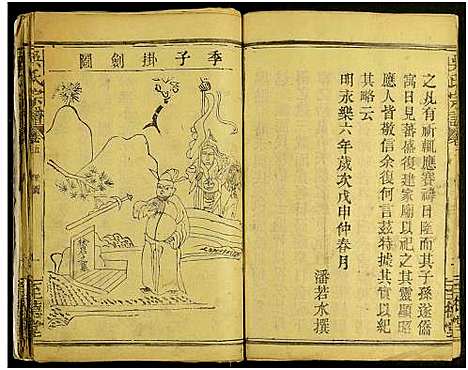 之凡有祈輒應賽禱日隆而其子孫遂僑
寓日見蕃盛復建家廟以祀之其靈顯昭
應人皆敬信余復何言茲特據其實以紀
其略云
明永樂六年歲次戊申仲春月
潘若水撰
季子掛劍圖
吳氏宗譜